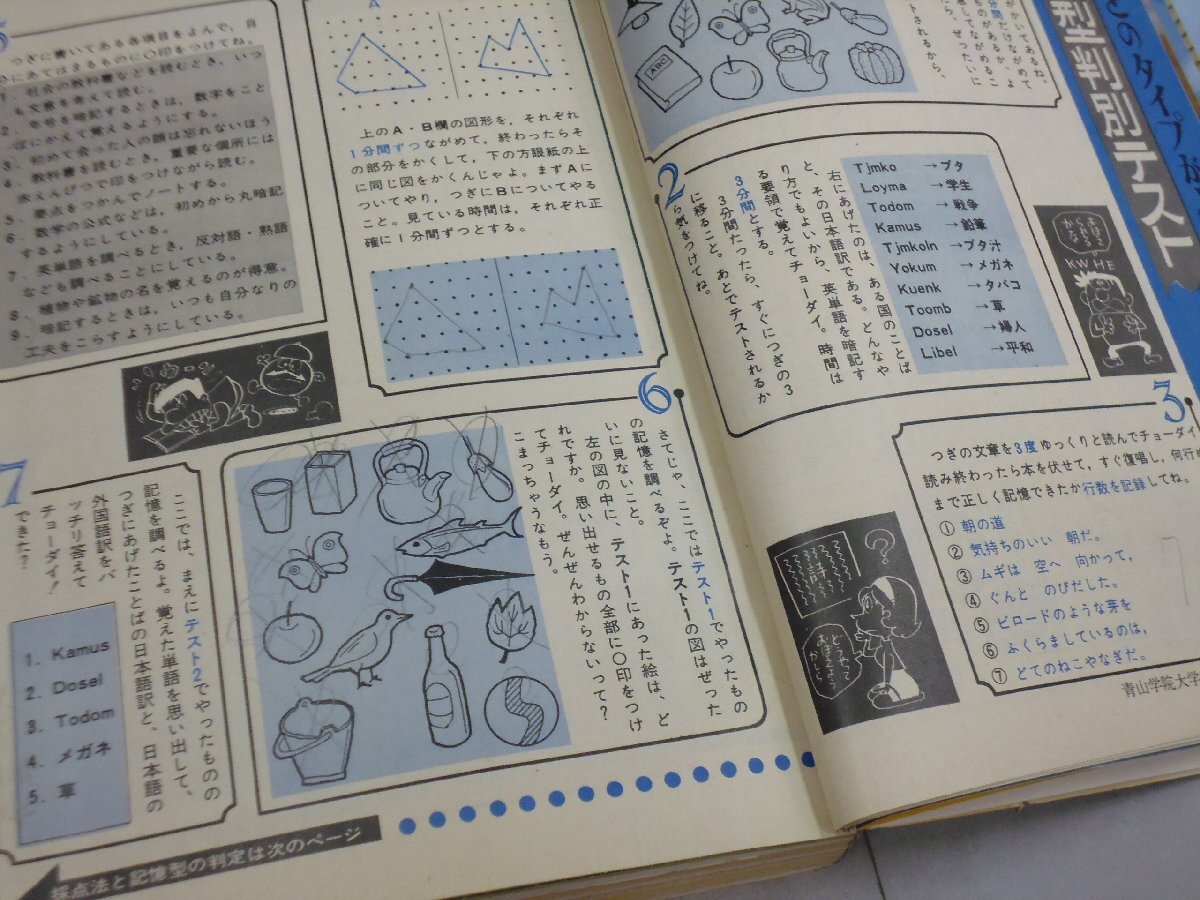 とのタイプが
型判別テスト
ABC
2
Tjmko →ブタ
Loyma →学生
Todom →戦争
Kamus →鉛筆
Tjmkoln →ブタ汁
Yokum →メガネ
Kuenk →タバコ
Toomb →草
Dosel →婦人
Libel →平和
右にあげたのは、ある国のことば
と、その日本語訳である。どんなや
り方でもよいから、英単語を暗記す
る要領で覚えてチョーダイ。時間は
3分間とする。
3分間たったら、すぐにつぎの3
に移ること。あとでテストされるか
ら気をつけてね。
KWHE
3
つぎの文章を3度ゆっくりと読んでチョーダイ
読み終わったら本を伏せて，すぐ復唱し，何行め
まで正しく記憶できたか行数を記録してね。
① 朝の道
② 気持ちのいい 朝だ。
③ ムギは 空へ 向かって，
④ ぐんと のびだした。
⑤ ビロードのような芽を
⑥ ふくらましているのは，
⑦ どてのねこやなぎだ。
青山学院大学
A
上のA・B欄の図形を，それぞれ
1分間ずつながめて，終わったらそ
の部分をかくして，下の方眼紙の上
に同じ図をかくんじゃよ。まずAに
ついてやり，つぎにBについてやる
こと。見ている時間は，それぞれ正
確に1分間ずつとする。
5
つぎに書いてある各項目をよんで，自
にあてはまるものに○印をつけてね。
1．社会の教科書などを読むとき，いつ
も文章を考えて読む。
2．年号を暗記するときは，数字をこと
ばにかえて覚えるようにする。
3．初めて会った人の顔は忘れないほう
4．教科書を読むとき，重要な個所には
赤えんぴつで印をつけながら読む。
5．要点をつかんでノートする。
6．数学の公式などは，初めから丸暗記
するようにしている。
7．英単語を調べるとき，反対語・熟語
なども調べることにしている。
8．植物や鉱物の名を覚えるのが得意。
9．暗記するときは，いつも自分なりの
工夫をこらすようにしている。
6
さてじゃ、ここではテスト1でやったもの
の記憶を調べるぞよ。テスト1の図はぜった
いに見ないこと。
左の図の中に、テスト1にあった絵は、ど
れですか。思い出せるもの全部に○印をつけ
てチョーダイ。ぜんぜんわからないって？
こまっちゃうなもう。
7
ここでは、まえにテスト2でやったものの
記憶を調べるよ。覚えた単語を思い出して、
つぎにあげたことばの日本語訳と、日本語の
外国語訳をバ
ッチリ答えて
チョーダイ！
できた？
1．Kamus
2．Dosel
3．Todom
4．メガネ
5．草
採点法と記憶型の判定は次のページ